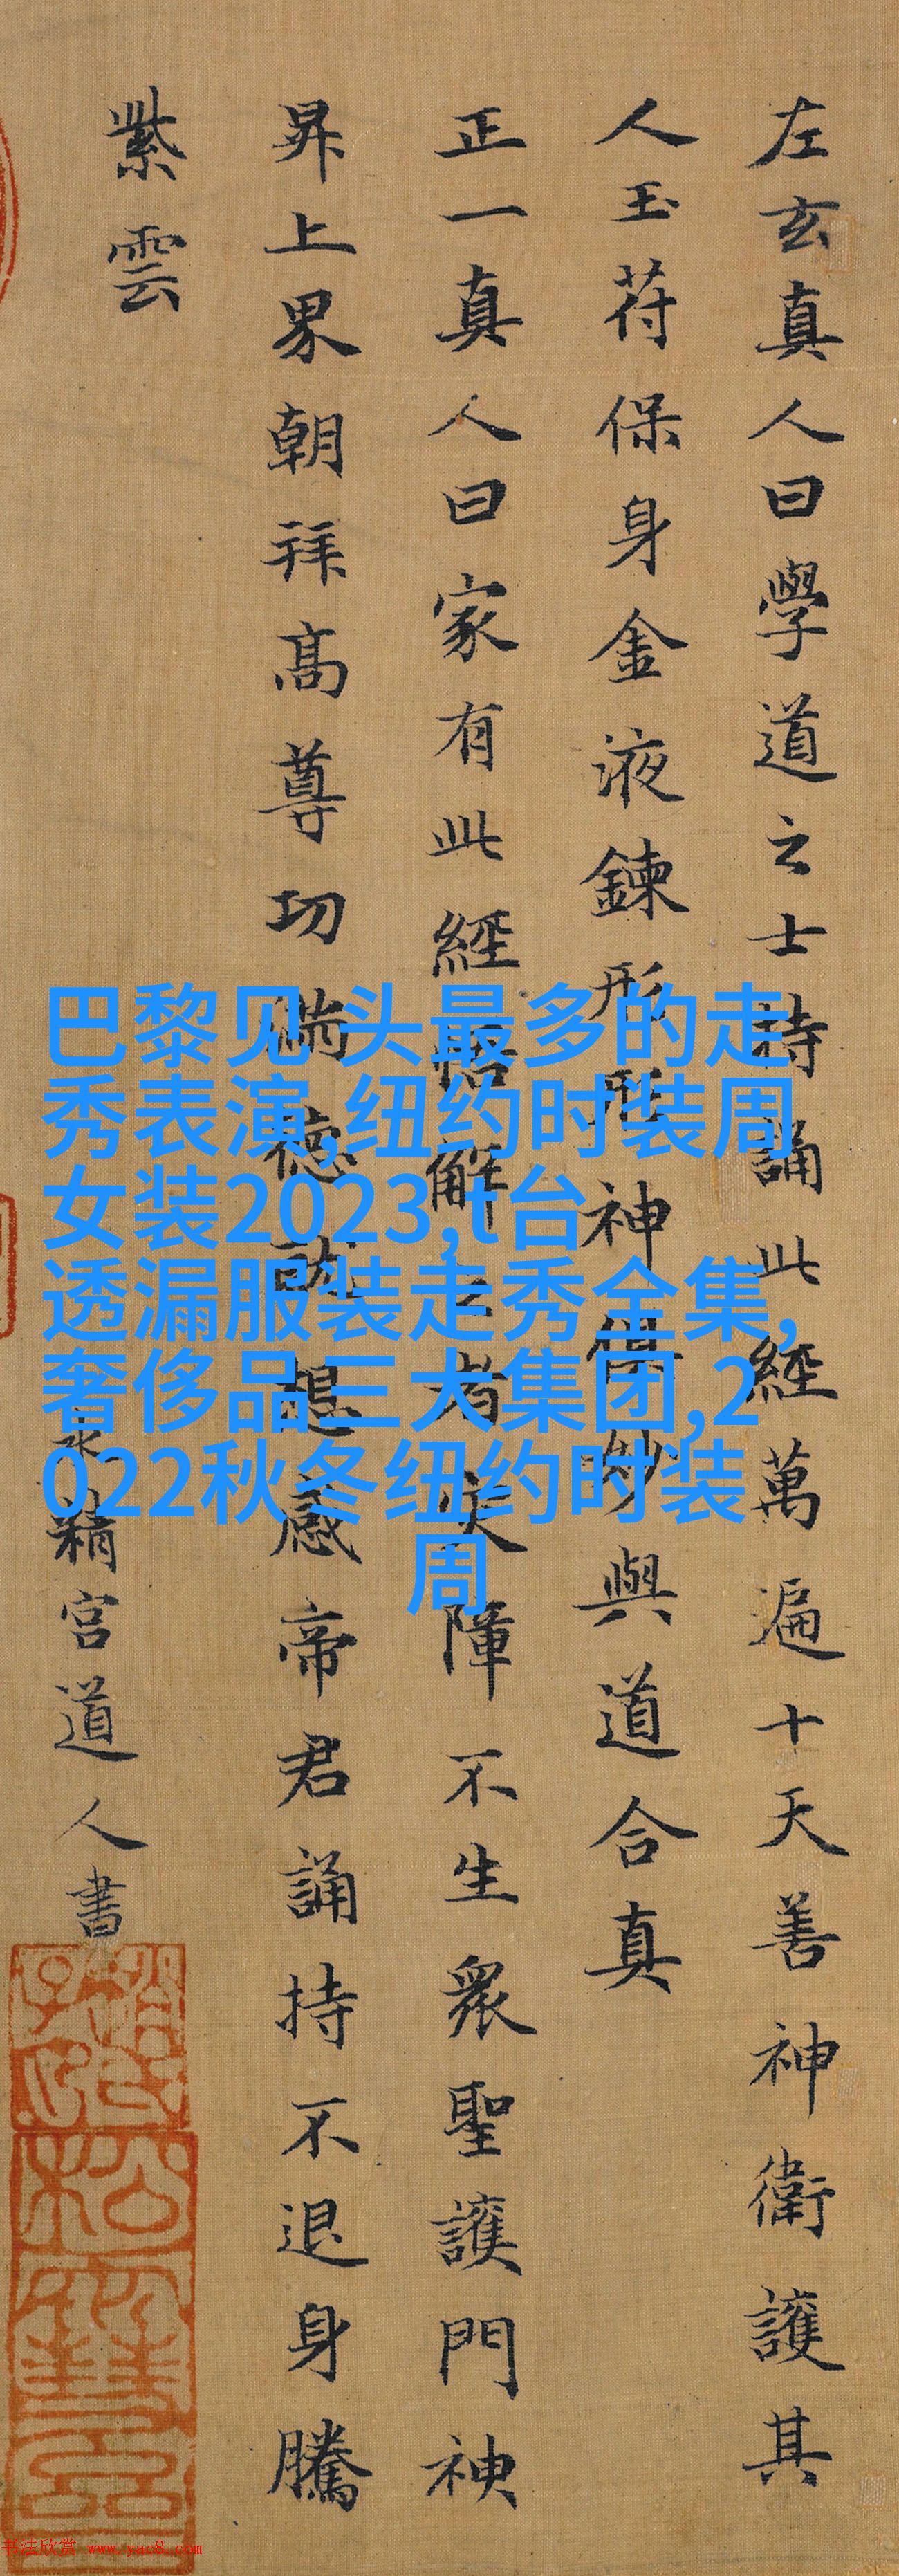 左玄真人曰學道之士持誦此經萬遍十天善神衛護其
人玉苻保身金液鍊形形神俱妙與道合真
正一真人曰家有此經悟解之者災障不生衆聖護門神
昇上界朝拜高尊功滿德就想感帝君誦持不退身騰
紫雲
水精宮道人書
巴黎见 头最多的走
秀表演,纽约时装周
女装2023,t台
透漏服装走秀全集,
奢侈品三大集团,2
022秋冬纽约时装
周
松雪齋
书法欣赏 www.yac8.com